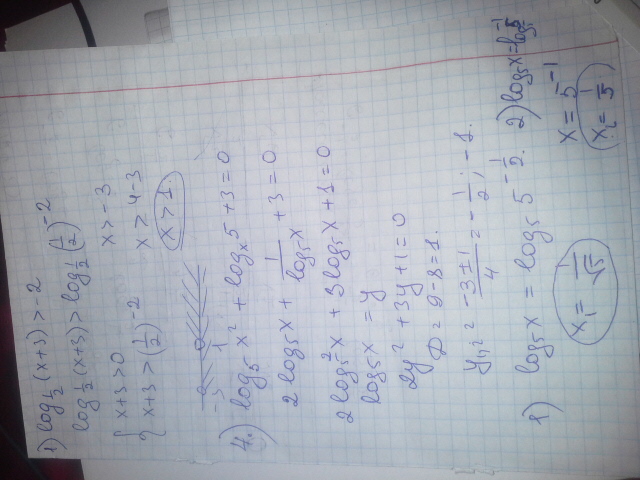 1) log_{1/2} (x+3) > -2
log_{1/2} (x+3) > log_{1/2} (1/2)^{-2}
{ x+3 > 0    x > -3
{ x+3 > (1/2)^{-2}    x > 4-3
x > 1.
-3    1
4.) log_5 x^2 + log_x 5 + 3 = 0
2 log_5 x + 1/(log_5 x) + 3 = 0
2 log_5^2 x + 3 log_5 x + 1 = 0
log_5 x = y
2y^2 + 3y + 1 = 0
D = 9 - 8 = 1.
y_{1,2} = (-3±1)/4 = -1/2; -1.
1) log_5 x = log_5 5^{-1/2}.    2) log_5 x = log_5 5^{-1}
x_1 = 1/√5    x = 5^{-1}
x_2 = 1/5